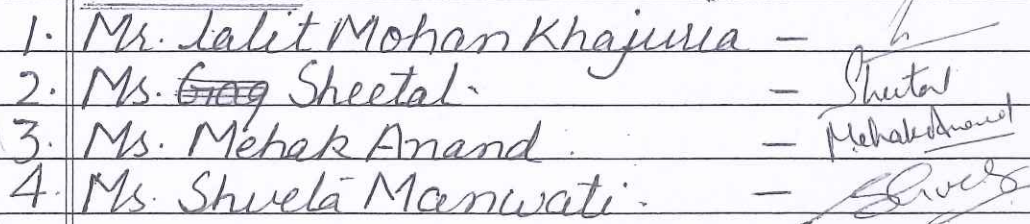 1. Mr. Lalit Mohan Khajuria -
2. Ms. Sheetal. - Sheetal
3. Ms. Mehak Anand. - Mehak Anand
4. Ms. Shveta Manwati. -